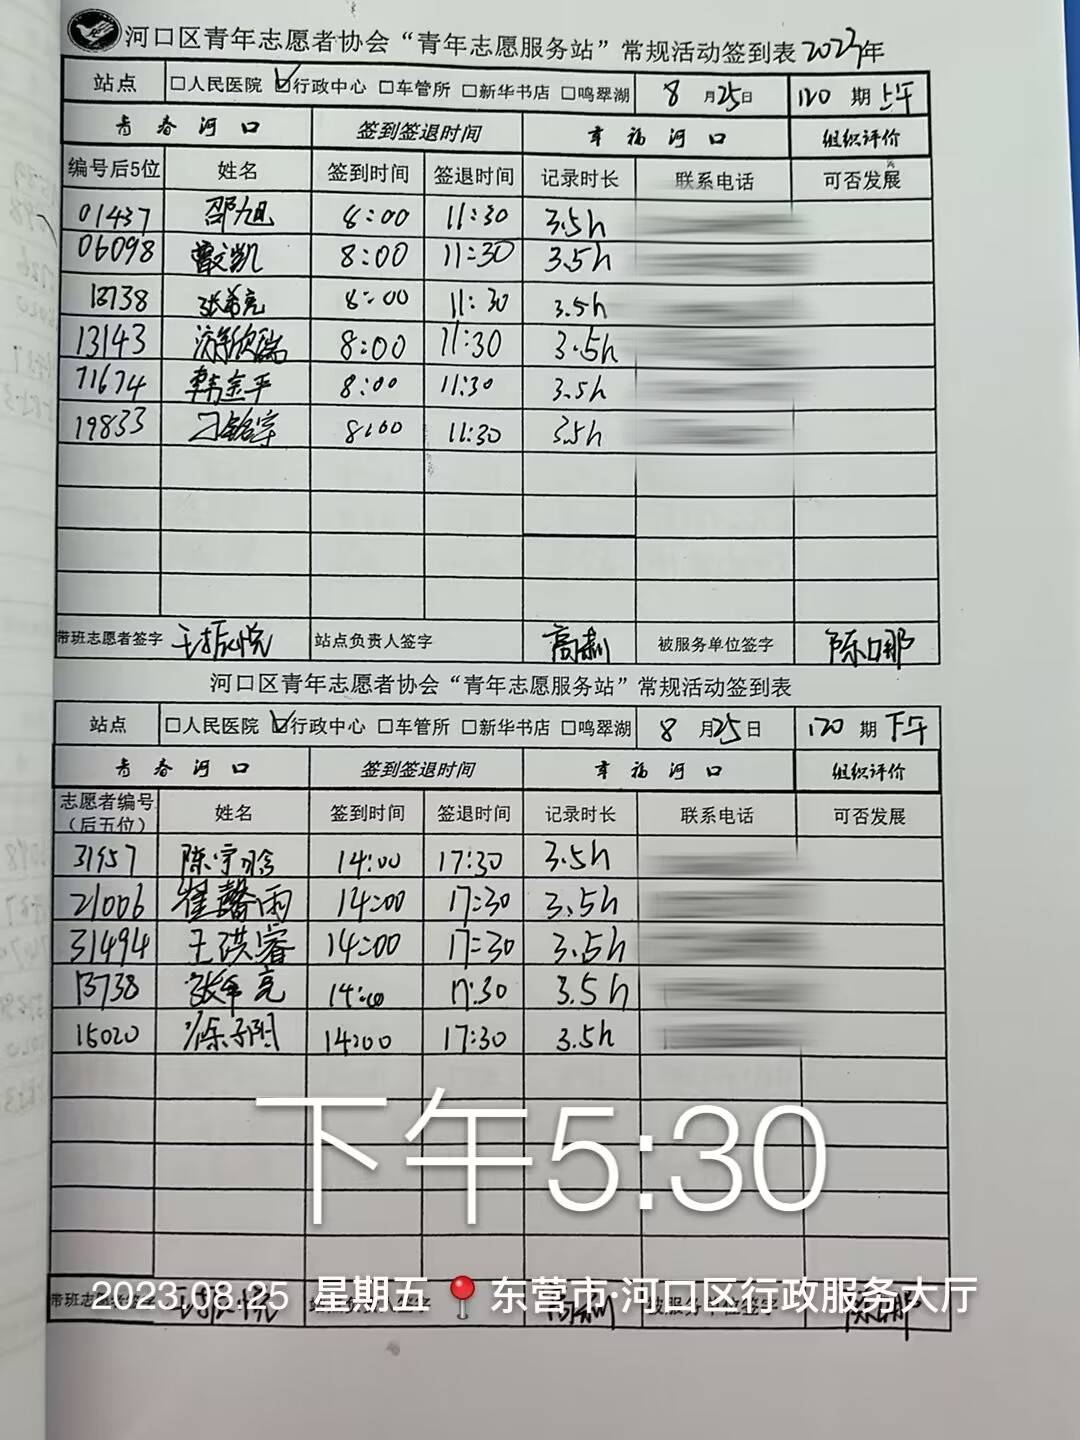 河口区青年志愿者协会“青年志愿服务站”常规活动签到表2023年
站点 □人民医院 ☑行政中心 □车管所 □新华书店 □鸣翠湖 8月25日 120期 上午
青春河口 签到签退时间 幸福河口 组织评价
编号后5位 姓名 签到时间 签退时间 记录时长 联系电话 可否发展
01437 邵旭 8:00 11:30 3.5h
06098 曹文凯 8:00 11:30 3.5h
13738 张希亮 8:00 11:30 3.5h
13143 8:00 11:30 3.5h
71674 韩金平 8:00 11:30 3.5h
19833 刁铭宇 8:00 11:30 3.5h
带班志愿者签字 王振悦 站点负责人签字 高 被服务单位签字 陈
河口区青年志愿者协会“青年志愿服务站”常规活动签到表
站点 □人民医院 ☑行政中心 □车管所 □新华书店 □鸣翠湖 8月25日 120期 下午
青春河口 签到签退时间 幸福河口 组织评价
志愿者编号（后五位） 姓名 签到时间 签退时间 记录时长 联系电话 可否发展
31957 陈宇晗 14:00 17:30 3.5h
21006 崔馨雨 14:00 17:30 3.5h
31494 王洪睿 14:00 17:30 3.5h
13738 张希亮 14:00 17:30 3.5h
15020 徐子阳 14:00 17:30 3.5h
下午5:30
带班志愿者签字 王振悦 站点负责人签字 高 被服务单位签字 陈
2023.08.25 星期五 东营市·河口区行政服务大厅